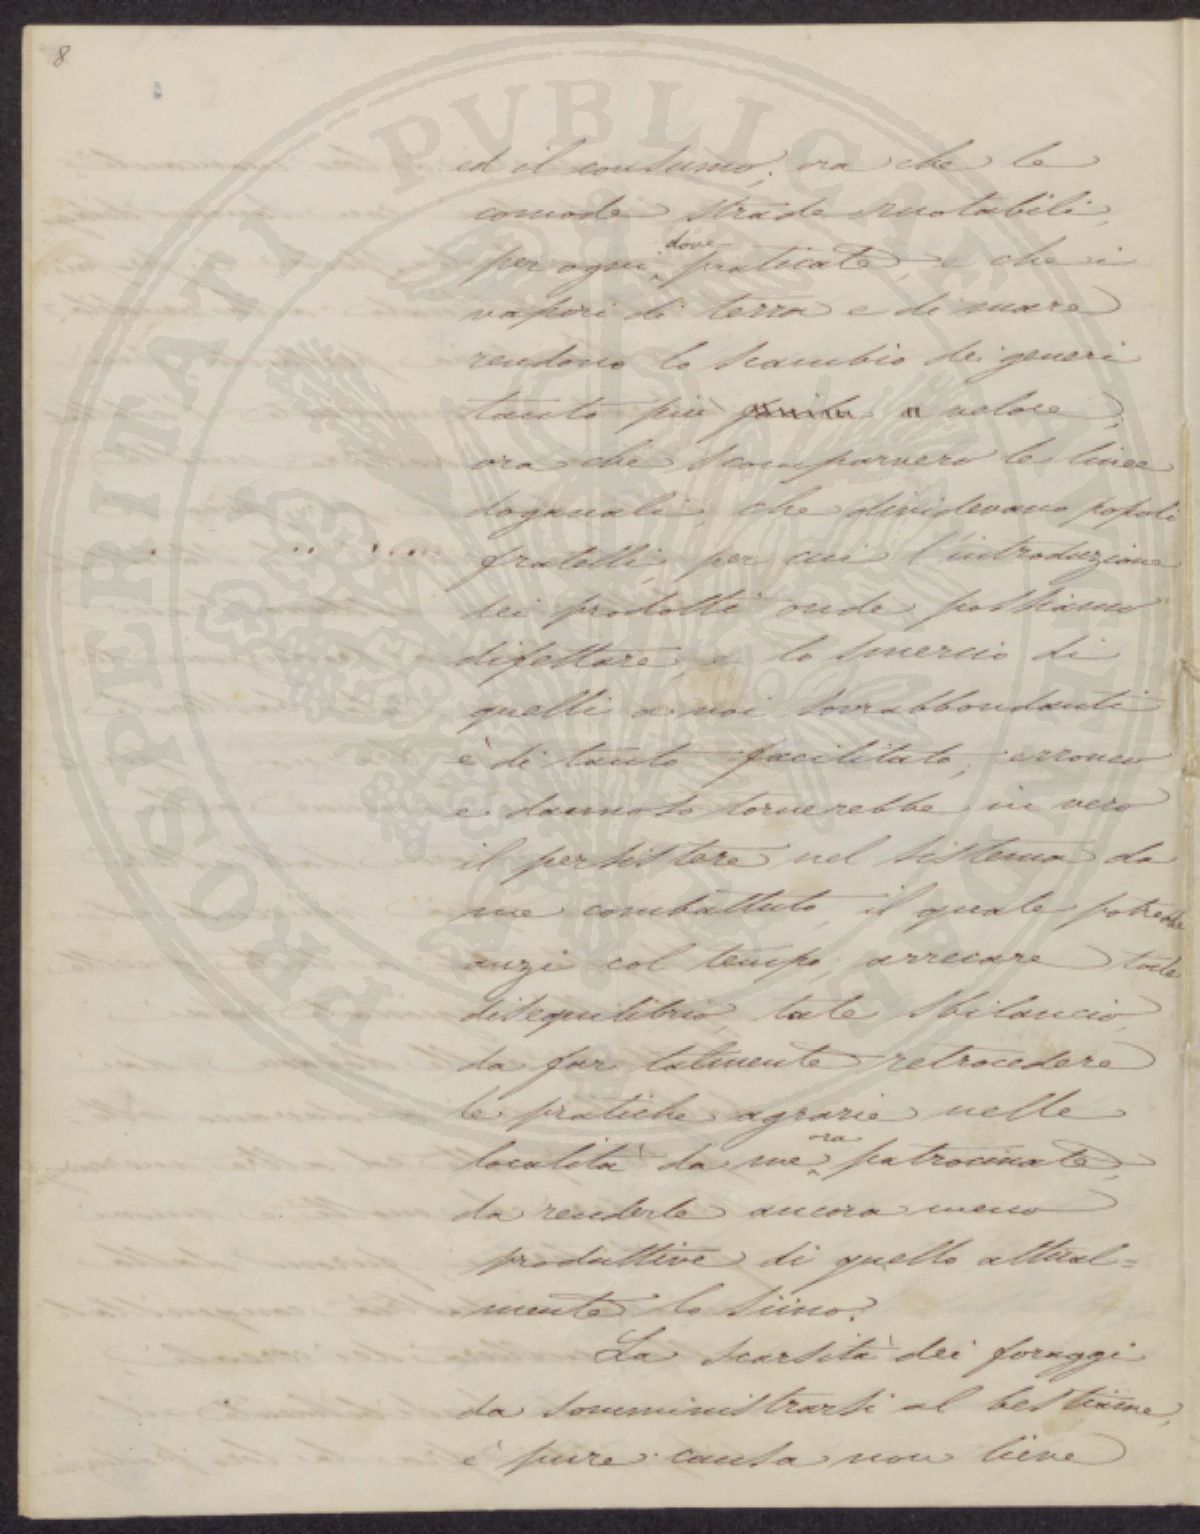 8
ed il consumo; ora che le
comode strade ruotabili,
per ogni dove praticate, e che i
vapori di terra e di mare
rendono lo scambio dei generi
tanto più veloce;
ora che scomparvero le linee
doganali, che dividevano popoli
fratelli, per cui l'introduzione
dei prodotti onde possiamo
difettare, e lo smercio di
quelli a noi sovrabbondanti
è di tanto facilitato; erroneo
e dannoso tornerebbe in vero
il persistere nel sistema da
me combattuto, il quale potrebbe
anzi col tempo, arrecare tale
disequilibrio, tale sbilancio,
da far talmente retrocedere
le pratiche agrarie nelle
località da me ora patrocinate,
da renderle ancora meno
produttive di quello attual=
mente lo siino.
La scarsità dei foraggi
da somministrarsi al bestiame,
è pure causa non lieve
PROSPERITATI PUBLICAE